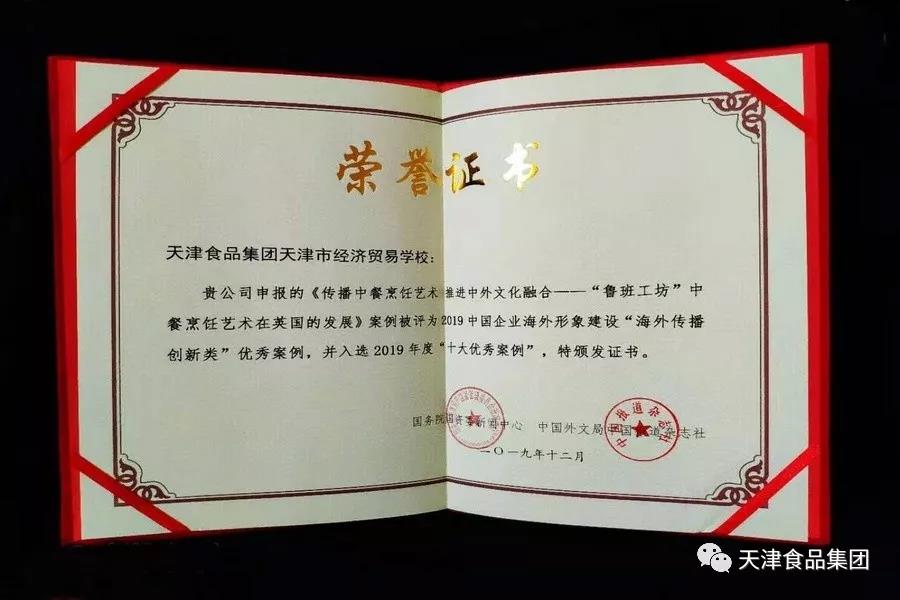 荣誉证书
天津食品集团天津市经济贸易学校：
贵公司申报的《传播中餐烹饪艺术 推进中外文化融合——“鲁班工坊”中
餐烹饪艺术在英国的发展》案例被评为2019中国企业海外形象建设“海外传播
创新类”优秀案例，并入选2019年度“十大优秀案例”，特颁发证书。
国务院国资委新闻中心 中国外文局中国报道杂志社
二〇一九年十二月
中国报道杂志社
天津食品集团